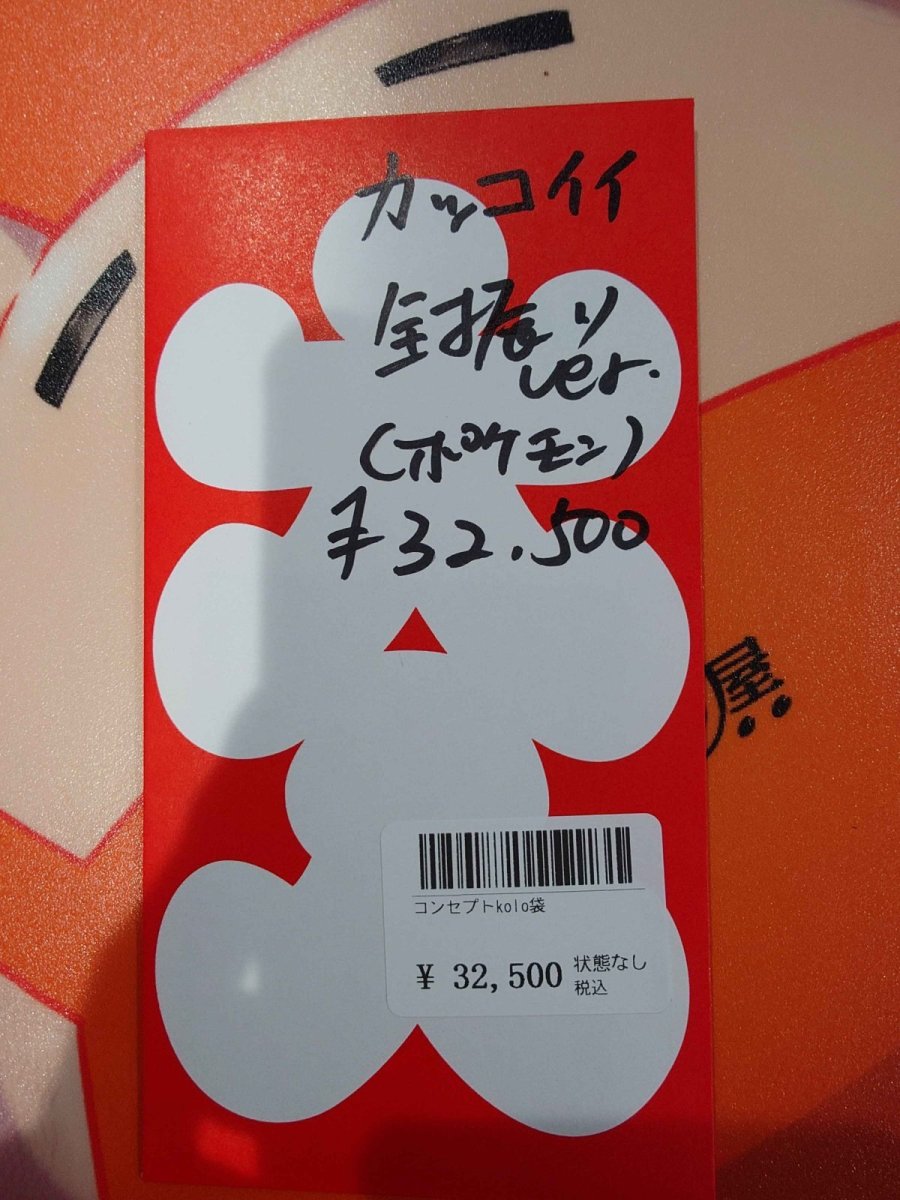 カッコイイ
全振り
ver.
(ポケモン)
¥32,500
屋
コンセプトkolo袋
¥ 32,500 状態なし
税込